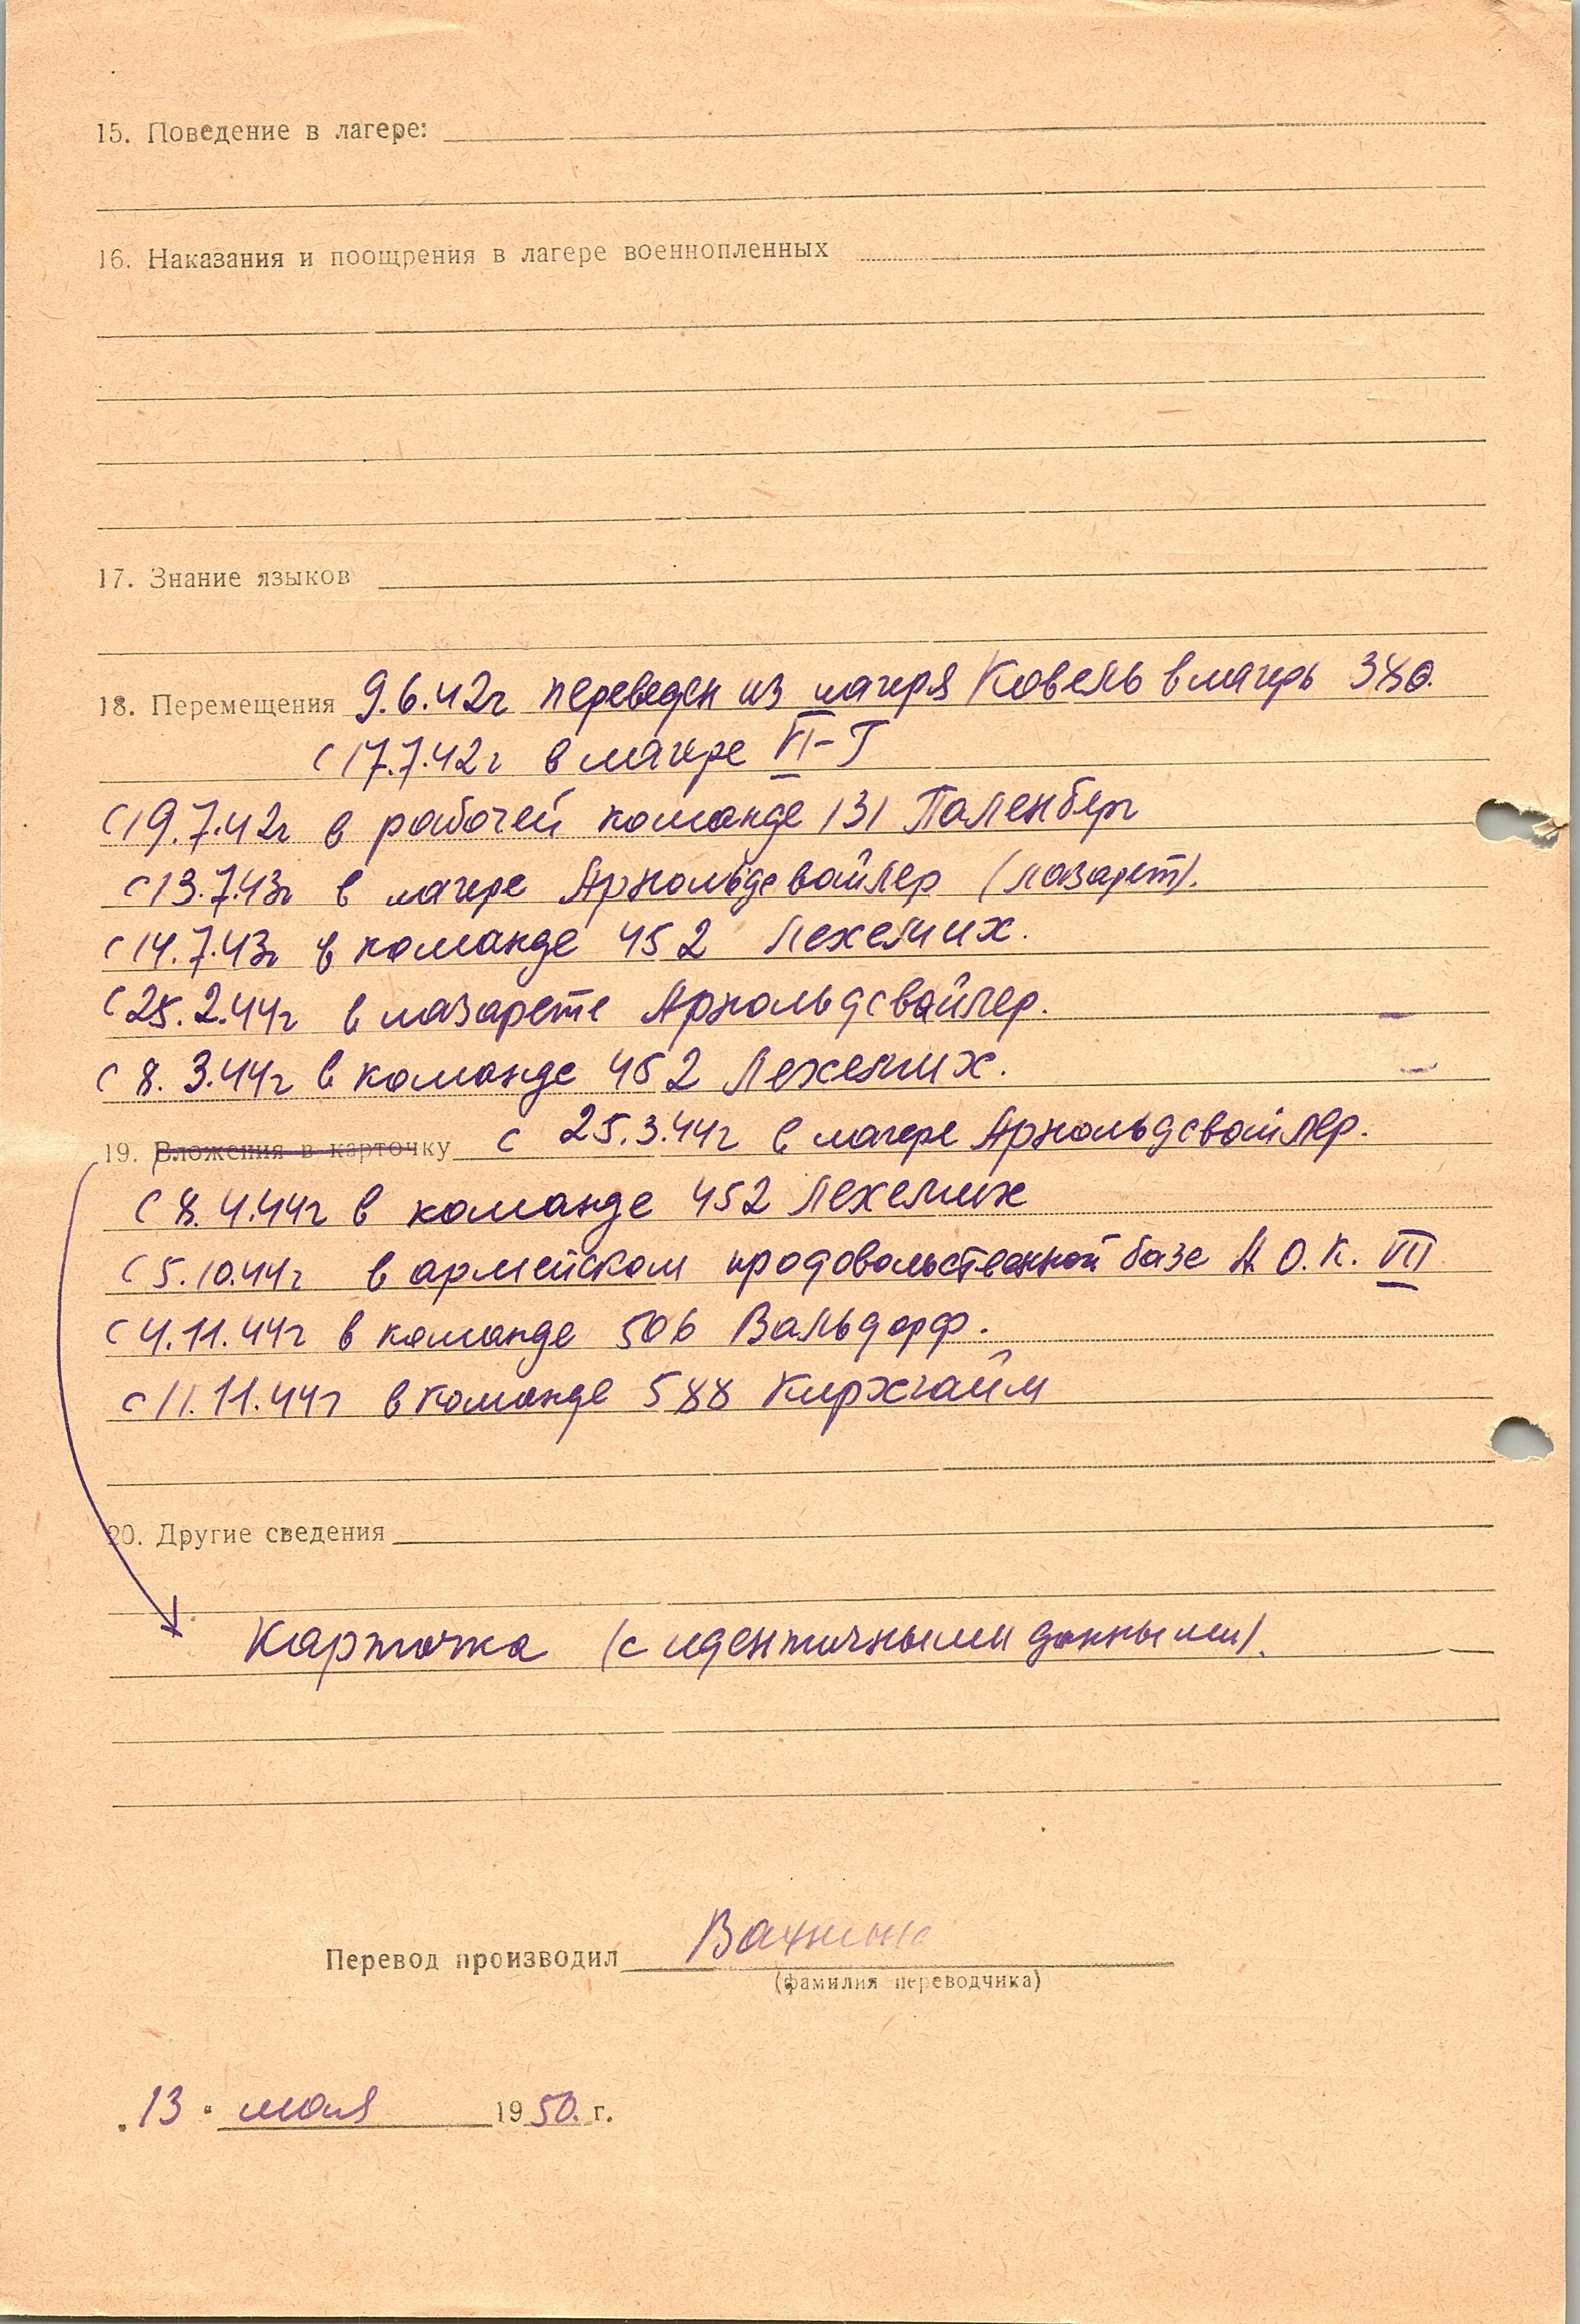 15. Поведение в лагере:
16. Наказания и поощрения в лагере военнопленных
17. Знание языков
18. Перемещения 9.6.42г переведен из лагеря Ковель в лагерь 380.
с 17.7.42г в лагере VI-Г
с 19.7.42г в рабочей команде 131 Паленберг
с 13.7.43г в лагере Арнольдсвайлер (лазарет).
с 14.7.43г в команде 452 Лехених.
с 25.2.44г в лазарете Арнольдсвайлер.
с 8.3.44г в команде 452 Лехених.
19. Вложения в карточку с 25.3.44г в лагере Арнольдсвайлер.
с 8.4.44г в команде 452 Лехених
с 5.10.44г в армейском продовольственной базе А.О.К. VII
с 4.11.44г в команде 506 Вальдорф.
с 11.11.44г в команде 588 Кирхгайм
20. Другие сведения
Карточка (с идентичными данными).
Перевод производил
(фамилия переводчика)
„13" мая 1950. г.